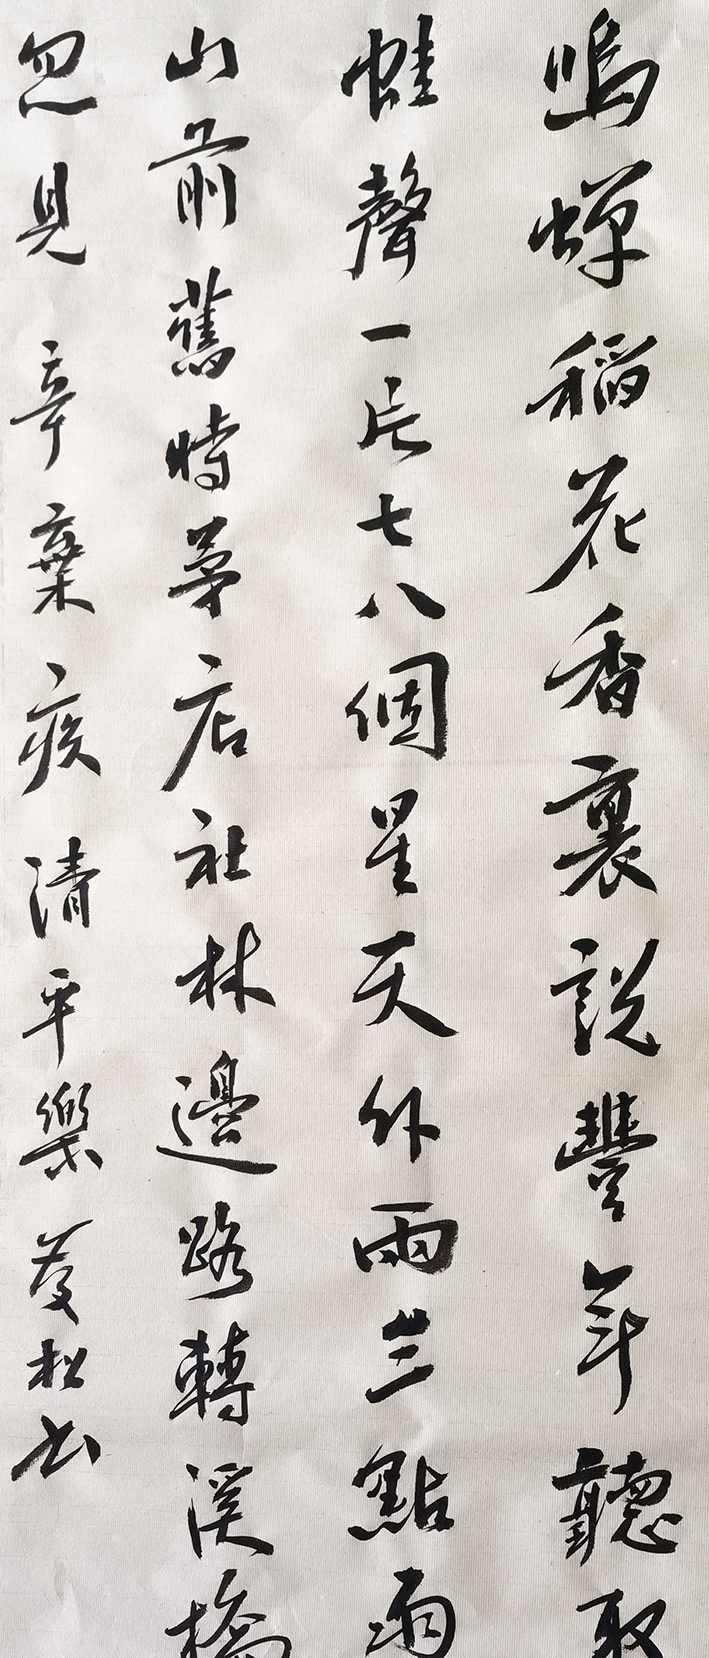 鳴蝉稻花香裏說豐年聽取
蛙聲一片七八個星天外兩三點雨
山前舊時茅店社林邊路轉溪橋
忽見 辛棄疾 清平樂 松书